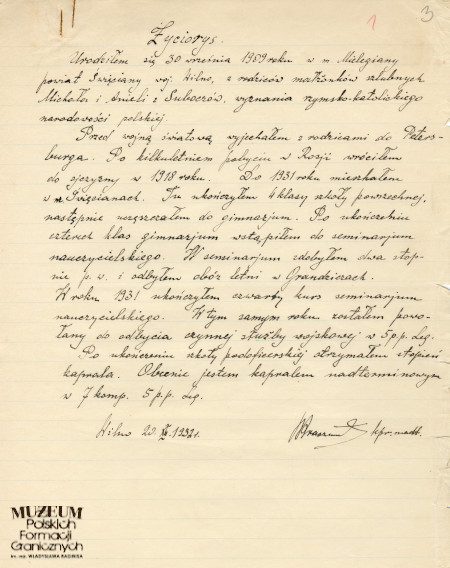 1
3
Życiorys.
Urodziłem się 30 września 1909 roku w m. Malegiany
powiat Święciany woj. Wilno, z rodziców małżonków ślubnych
Michała i Anieli z Suboczów, wyznania rzymsko-katolickiego
narodowości polskiej.
Przed wojną światową wyjechałem z rodzicami do Peters-
burga. Po kilkuletniem pobyciu w Rosji wróciłem
do ojczyzny w 1918 roku. Do 1931 roku mieszkałem
w Święcianach. Tu ukończyłem 4 klasy szkoły powszechnej,
następnie uczęszczałem do gimnazjum. Po ukończeniu
czterech klas gimnazjum wstąpiłem do seminarjum
nauczycielskiego. W seminarjum zdobyłem dwa stop-
nie p.w. i odbyłem obóz letni w Grandziczach.
W roku 1931 ukończyłem czwarty kurs seminarjum
nauczycielskiego. W tym samym roku zostałem powo-
łany do odbycia czynnej służby wojskowej w 5 p.p. Leg.
Po ukończeniu szkoły podoficerskiej otrzymałem stopień
kaprala. Obecnie jestem kapralem nadterminowym
w 7 komp. 5 p.p. Leg.
Wilno 20 XI. 1932 r.
kpr. nadt.
MUZEUM
Polskich
Formacji
Granicznych
im. mjr. WŁADYSŁAWA RAGINISA